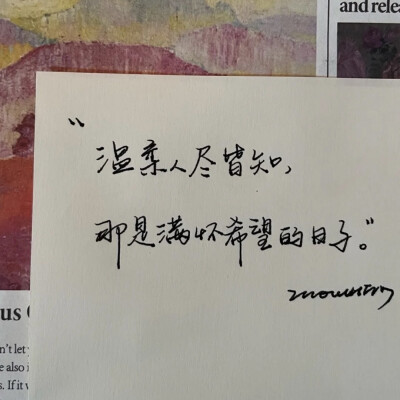 and relea
"温柔人尽皆知,
那是满怀希望的日子。"
us
n't let
e also i
s. If it w